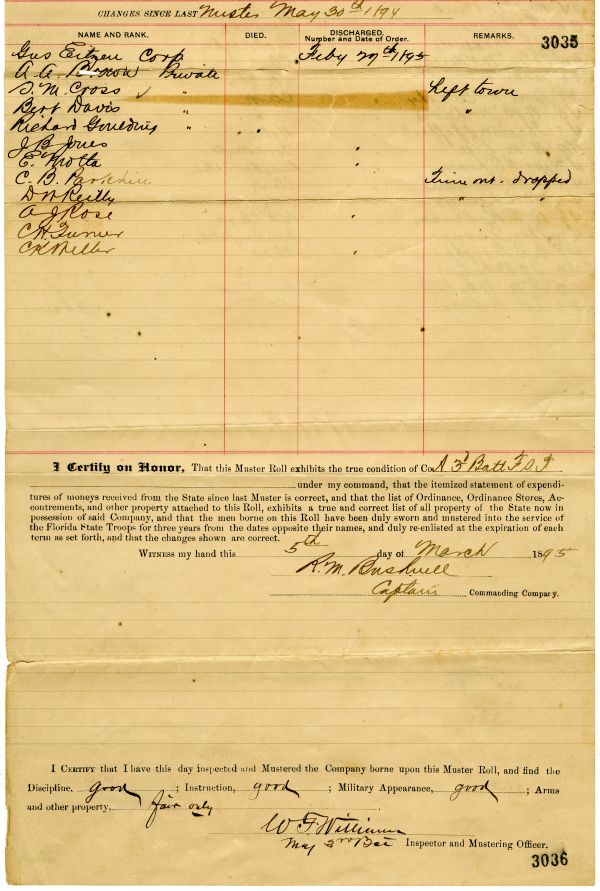 CHANGES SINCE LAST Muster May 30th 1894
NAME AND RANK. DIED. DISCHARGED. Number and Date of Order. REMARKS. 3035
Gus Eitzen Corp Feby 27th 1895
A. A. Brown Private
S. M. Cross " Left town
Bert Davis " "
Richard Goulding "
J B Jones "
E. Motta "
C. B. Parkhill Time out. dropped
D W Reilly " "
A J Rose "
C H Turner
C K Weller "
I Certify on Honor, That this Muster Roll exhibits the true condition of Co A 3d Batt F S T
under my command, that the itemized statement of expendi-
tures of moneys received from the State since last Muster is correct, and that the list of Ordinance, Ordinance Stores, Ac-
coutrements, and other property attached to this Roll, exhibits a true and correct list of all property of the State now in
possession of said Company, and that the men borne on this Roll have been duly sworn and mustered into the service of
the Florida State Troops for three years from the dates opposite their names, and duly re-enlisted at the expiration of each
term as set forth, and that the changes shown are correct.
WITNESS my hand this 5th day of March 1895
R. M. Bushnell
Captain Commanding Company.
I CERTIFY that I have this day inspected and Mustered the Company borne upon this Muster Roll, and find the
Discipline, good ; Instruction, good ; Military Appearance, good ; Arms
and other property. fair only
W F Williams
Maj 3rd Bat Inspector and Mustering Officer.
3036